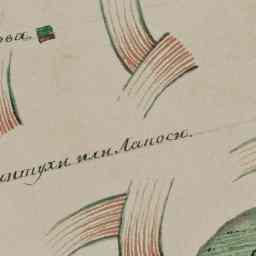 ва.
интухи или Лапоси.